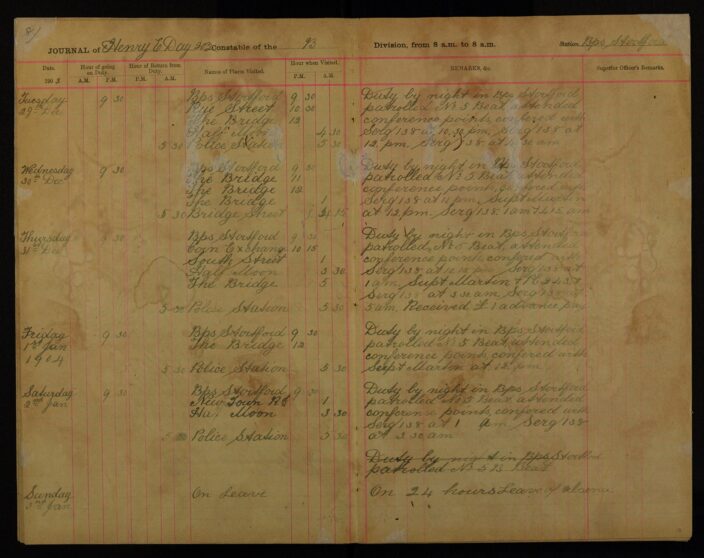 81
JOURNAL of Henry E Day 202 Constable of the 93 Division, from 8 a.m. to 8 a.m. Station Bps Stortford
Date. Hour of going on Duty. Hour of Return from Duty. Names of Places Visited. Hour when Visited. REMARKS, &c. Superior Officer's Remarks.
190 3 A.M. P.M. P.M. A.M. P.M. A.M.
Tuesday 9 30 Bps Stortford 9 30 Duty by night in Bps Stortford
29th Dec Street 10 30 patrolled No 5 Beat, attended
The Bridge 12 conference points, confered with
Half Moon 4 30 Serg 138 at 10.30 pm, Serg 138 at
5 30 Police Station 5 30 12 pm, Serg 138 at 4.30 am
Wednesday 9 30 Bps Stortford 9 30 Duty by night in Bps Stortford
30th Dec The Bridge 11 patrolled No 5 Beat, attended
The Bridge 12 conference points, confered with
The Bridge 1 Serg 138 at 11 pm, Supt Martin
5 30 Bridge Street at 12 pm, Serg 138 1 am 4.15 am
Thursday 9 30 Bps Stortford 9 30 Duty by night in Bps Stortford
31st Dec Corn Exchang 10 15 patrolled No 5 Beat, attended
South Street 1 conference points, confered with
Half Moon 3 30 Serg 138 at Serg 138 at
The Bridge 5 1 am, Supt Martin + PC
Serg 138 at 3.30 am Serg 138
5 30 Police Station 5 30 5 am. Received £1 advance pay
Friday 9 30 Bps Stortford 9 30 Duty by night in Bps Stortford
1st Jan The Bridge 12 patrolled No 5 Beat, attended
1904 conference points, confered with
5 30 Police Station 5 30 Supt Martin at 12 pm
Saturday 9 30 Bps Stortford 9 30 Duty by night in Bps Stortford
2nd Jan New Town Rd 1 patrolled No 5 Beat, attended
Half Moon 3 30 conference points, confered with
Serg 138 at 1 am Serg 138
5 30 Police Station 5 30 at 3.30 am
Duty by night in Bps Stortford
patrolled No 5 B Beat
Sunday On Leave On 24 hours Leave of absence
3rd Jan